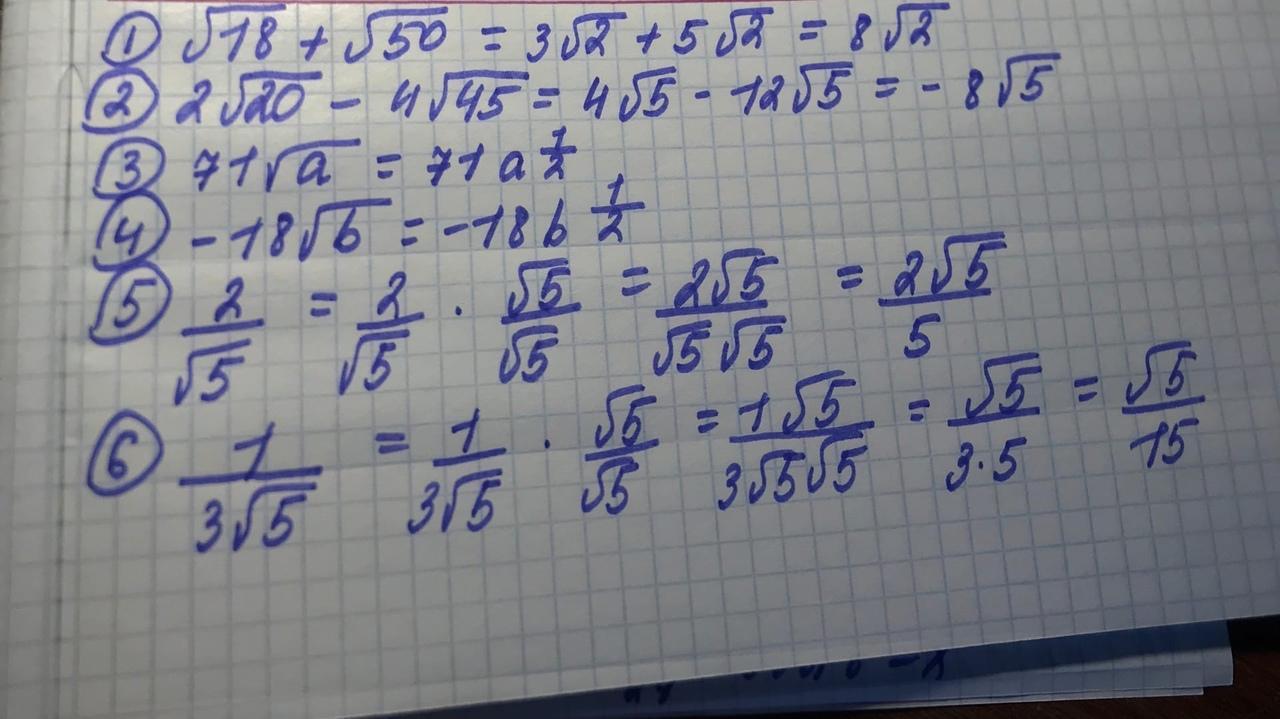 ① √18 + √50 = 3√2 + 5√2 = 8√2
② 2√20 - 4√45 = 4√5 - 12√5 = - 8√5
③ 71√a = 71a^(1/2)
④ -18√b = -18b^(1/2)
⑤ 2/√5 = 2/√5 · √5/√5 = 2√5/(√5√5) = 2√5/5
⑥ 1/(3√5) = 1/(3√5) · √5/√5 = 1√5/(3√5√5) = √5/(3·5) = √5/15